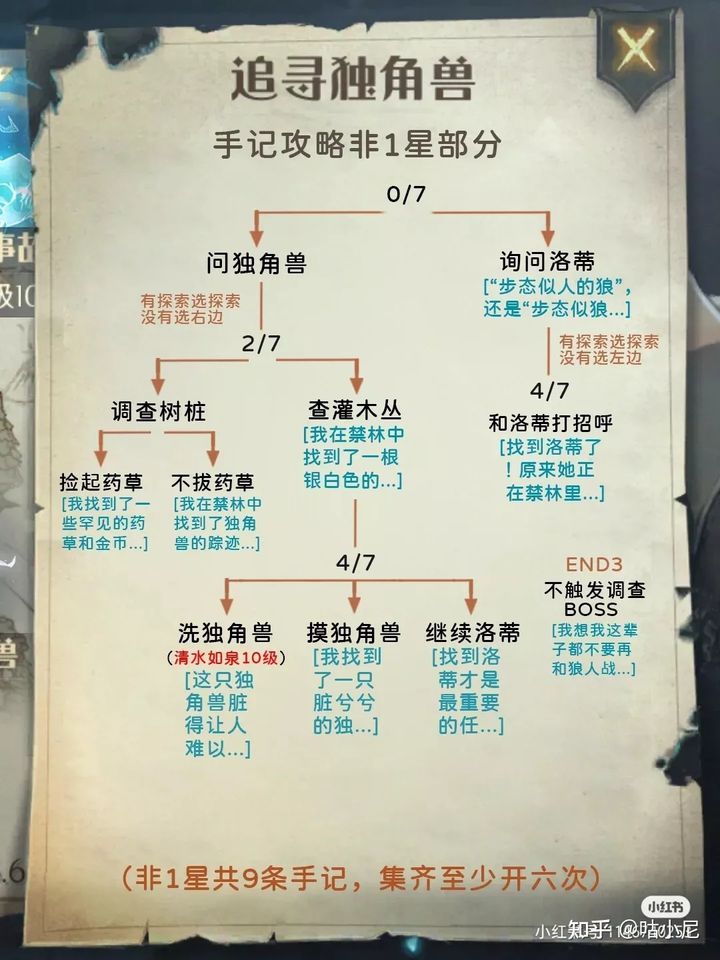 追寻独角兽
手记攻略非1星部分
0/7
问独角兽
询问洛蒂
[“步态似人的狼”,
还是“步态似狼...]
有探索选探索
没有选右边
有探索选探索
没有选左边
2/7
4/7
调查树桩
查灌木丛
[我在禁林中
找到了一根
银白色的...]
和洛蒂打招呼
[找到洛蒂了
！原来她正
在禁林里...]
捡起药草
[我找到了一
些罕见的药
草和金币...]
不拔药草
[我在禁林中
找到了独角
兽的踪迹...]
4/7
END3
不触发调查
BOSS
[我想我这辈
子都不要再
和狼人战...]
洗独角兽
（清水如泉10级）
[这只独
角兽脏
得让人
难以...]
摸独角兽
[我找到
了一只
脏兮兮
的独...]
继续洛蒂
[找到洛
蒂才是
最重要
的任...]
（非1星共9条手记，集齐至少开六次）
事故
级10
兽
.6
小红书
小红书号
知乎 @咕小尼